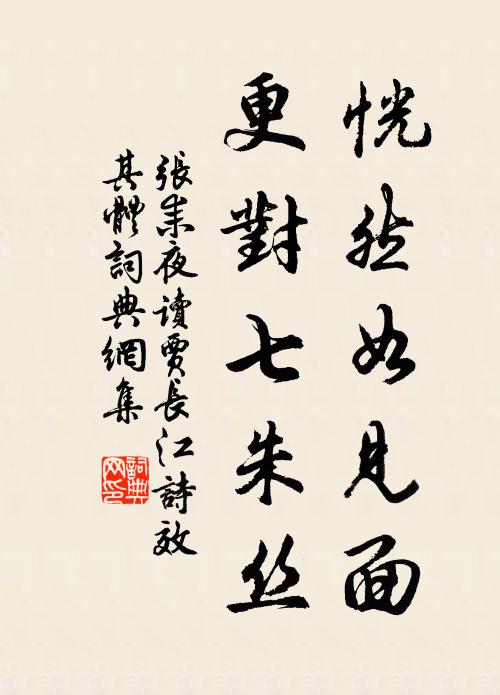 恍然如見面
更對七朱丝
張耒夜讀賈長江詩效
其體詞典網集
詞典
网印